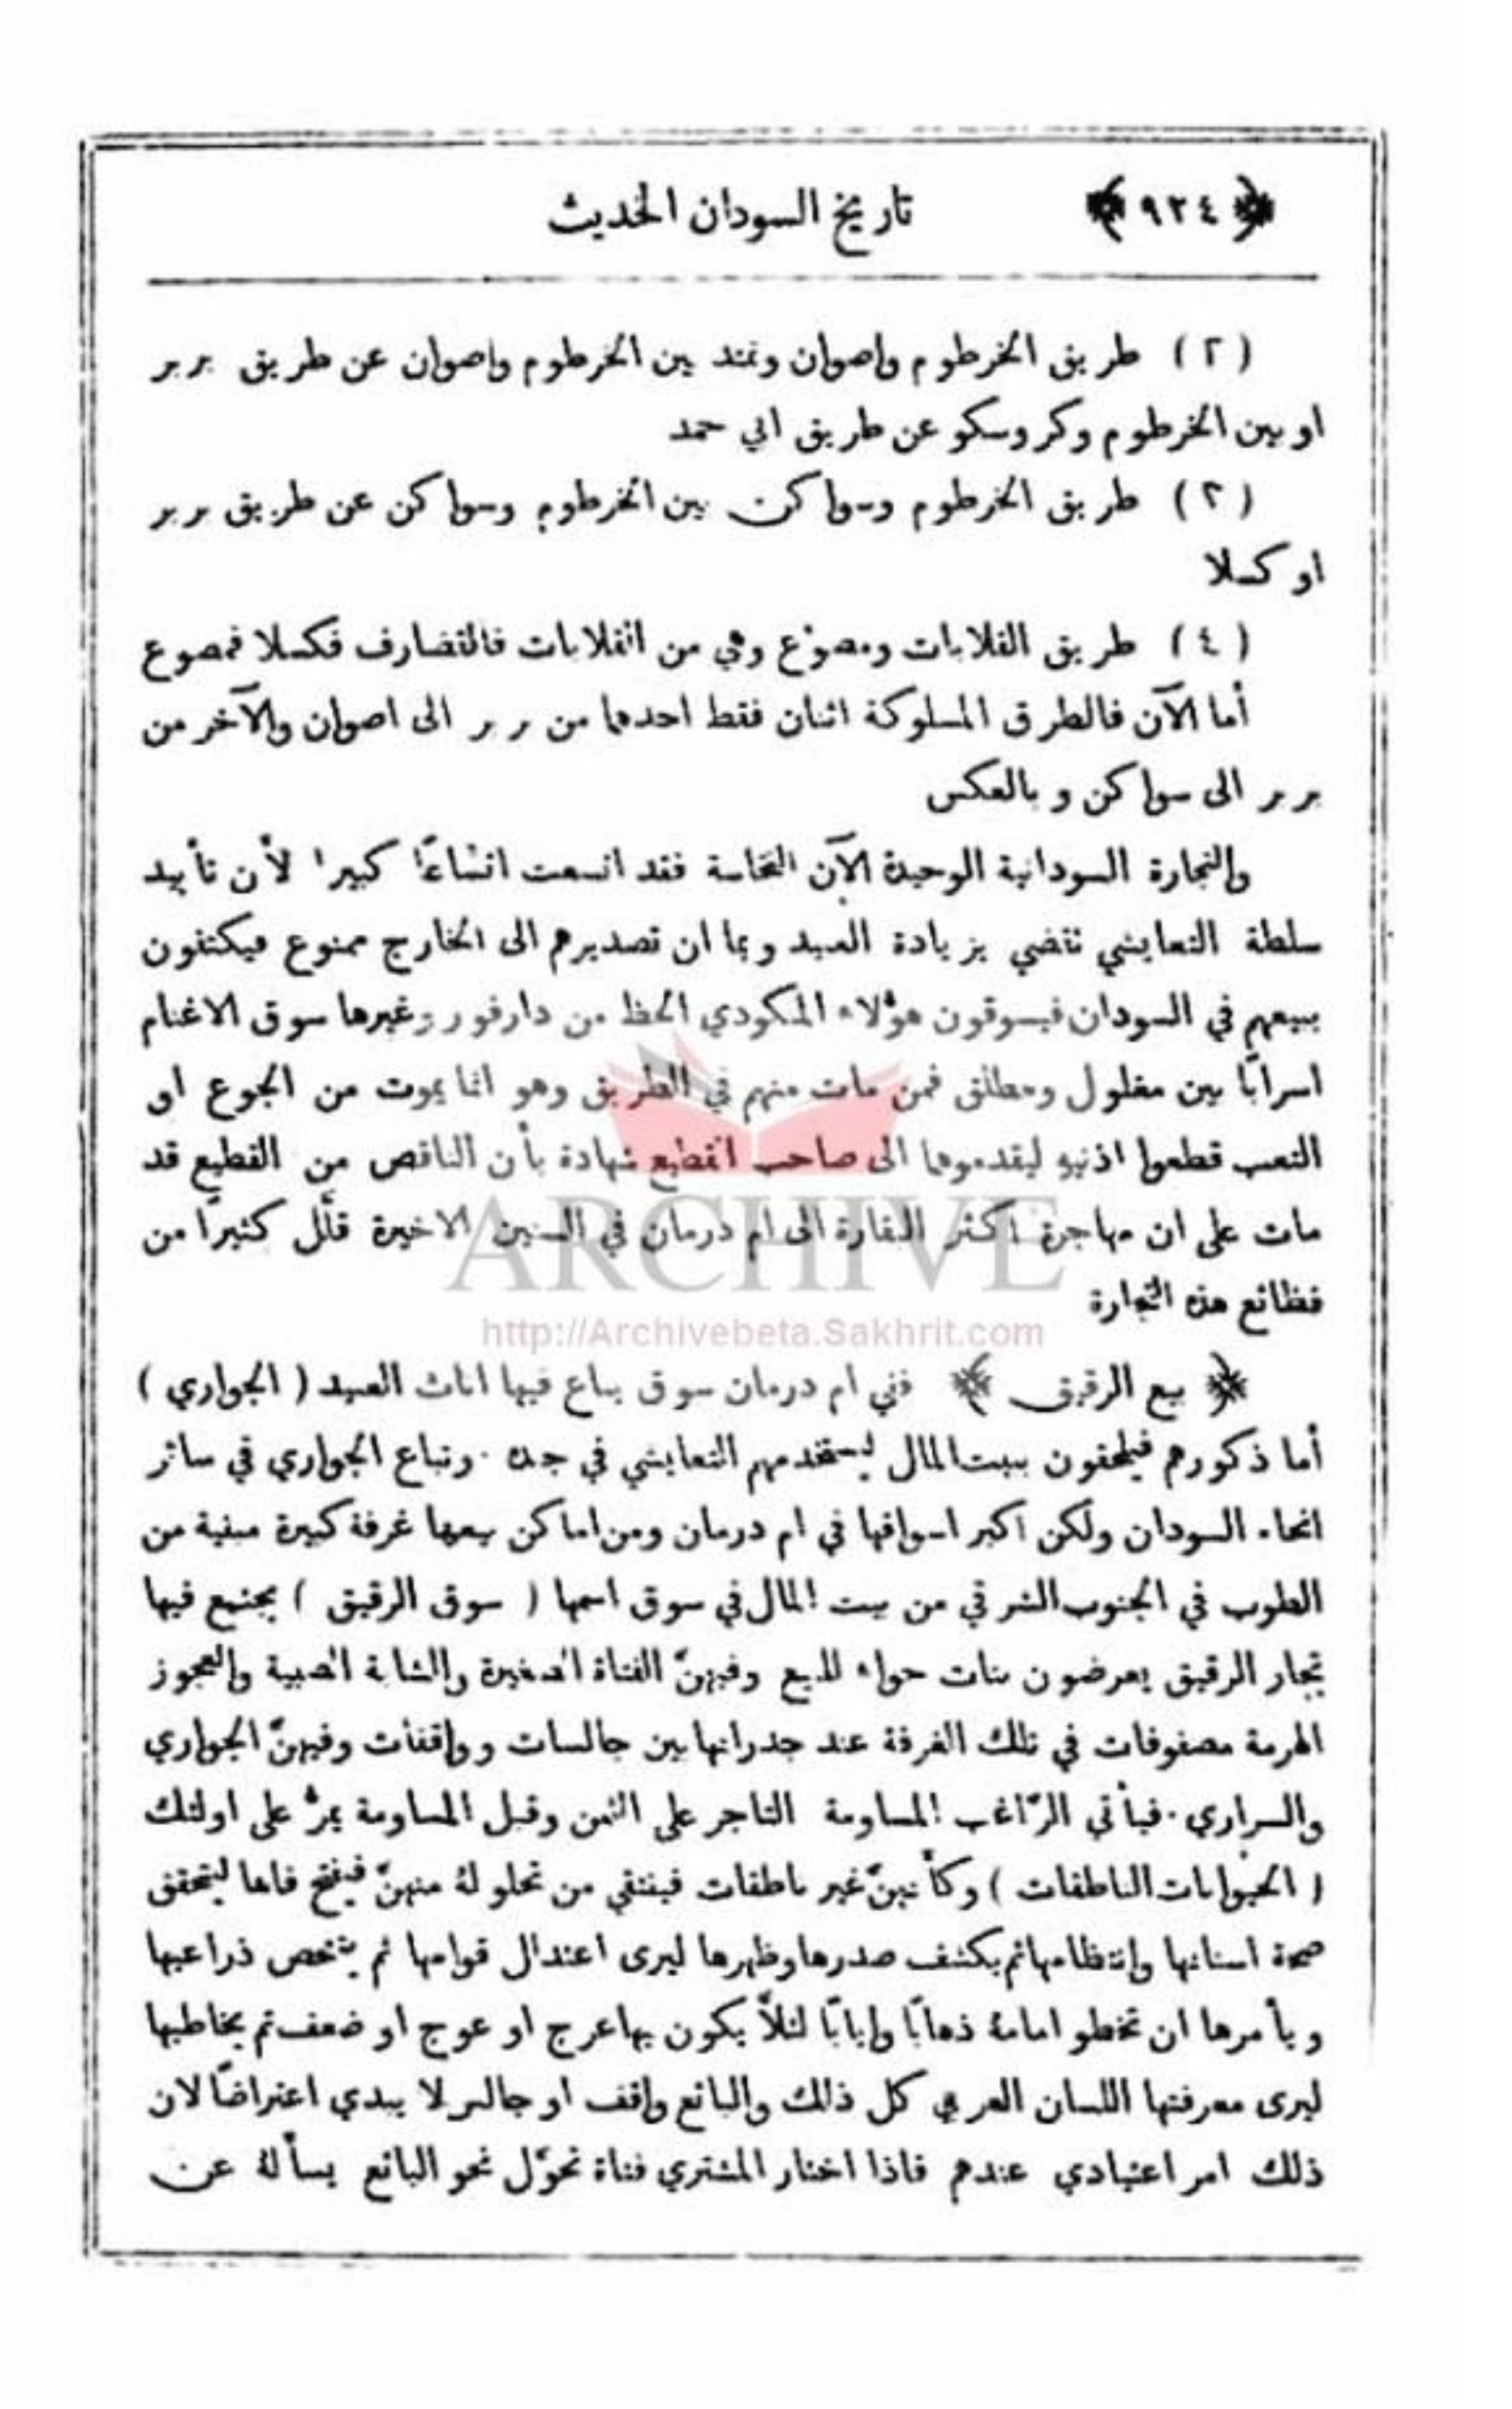 ﴿ ٩٢٤ ﴾ تاريخ السودان الحديث
( ٢ ) طريق الخرطوم واصوان وتمتد بين الخرطوم واصوان عن طريق بربر
او بين الخرطوم وكروسكو عن طريق ابي حمد
( ٣ ) طريق الخرطوم وسواكن بين الخرطوم وسواكن عن طريق بربر
او كسلا
( ٤ ) طريق القلابات ومصوّع وهي من القلابات فالقضارف فكسلا فمصوع
أما الآن فالطرق المسلوكة اثنان فقط احدهما من بربر الى اصوان والآخر من
بربر الى سواكن وبالعكس
والتجارة السودانية الوحيدة الآن النخاسة فقد اتسعت اتساعًا كبيرا لأن تأييد
سلطة التعايشي تقضي بزيادة العبيد وبما ان تصديرهم الى الخارج ممنوع فيكتفون
ببيعهم في السودان فيسوقون هؤلاء المنكودي الحظ من دارفور وغيرها سوق الاغنام
اسرابًا بين مغلول ومطلق فمن مات منهم في الطريق وهو انما يموت من الجوع او
التعب قطعوا اذنيهِ ليقدموهما الى صاحب القطيع شهادة بأن الناقص من القطيع قد
مات على ان مهاجرة اكثر البقارة الى ام درمان في السنين الاخيرة قلّل كثيرًا من
فظائع هذه التجارة
﴿ بيع الرقيق ﴾ ففي ام درمان سوق يباع فيها اناث العبيد ( الجواري )
أما ذكورهم فيلحقون ببيت المال ليستخدمهم التعايشي في جنده . وتباع الجواري في سائر
انحاء السودان ولكن اكبر اسواقها في ام درمان ومن اماكن بيعها غرفة كبيرة مبنية من
الطوب في الجنوب الشرقي من بيت المال في سوق اسمها ( سوق الرقيق ) يجتمع فيها
تجار الرقيق يعرضون بنات حواء للبيع وفيهنّ الفتاة الصغيرة والشابة الصبية والعجوز
الهرمة مصفوفات في تلك الغرفة عند جدرانها بين جالسات وواقفات وفيهنّ الجواري
والسراري . فيأتي الرّاغب المساومة التاجر على الثمن وقبل المساومة يمرُّ على اولئك
( الحيوانات الناطقات ) وكأنهنّ غير ناطقات فينتقي من تحلو لهُ منهنّ فيفتح فاها ليتحقق
صحة اسنانها وانتظامها ثم يكشف صدرها وظهرها ليرى اعتدال قوامها ثم يتفحص ذراعيها
ويأمرها ان تخطو امامهُ ذهابًا وإيابًا لئلاَّ يكون بها عرج او عوج او ضعف ثم يخاطبها
ليرى معرفتها اللسان العربي كل ذلك والبائع واقف او جالس لا يبدي اعتراضًا لان
ذلك امر اعتيادي عندهم فاذا اختار المشتري فتاة تحوّل نحو البائع يسألهُ عن
ARCHIVE
http://Archivebeta.Sakhrit.com